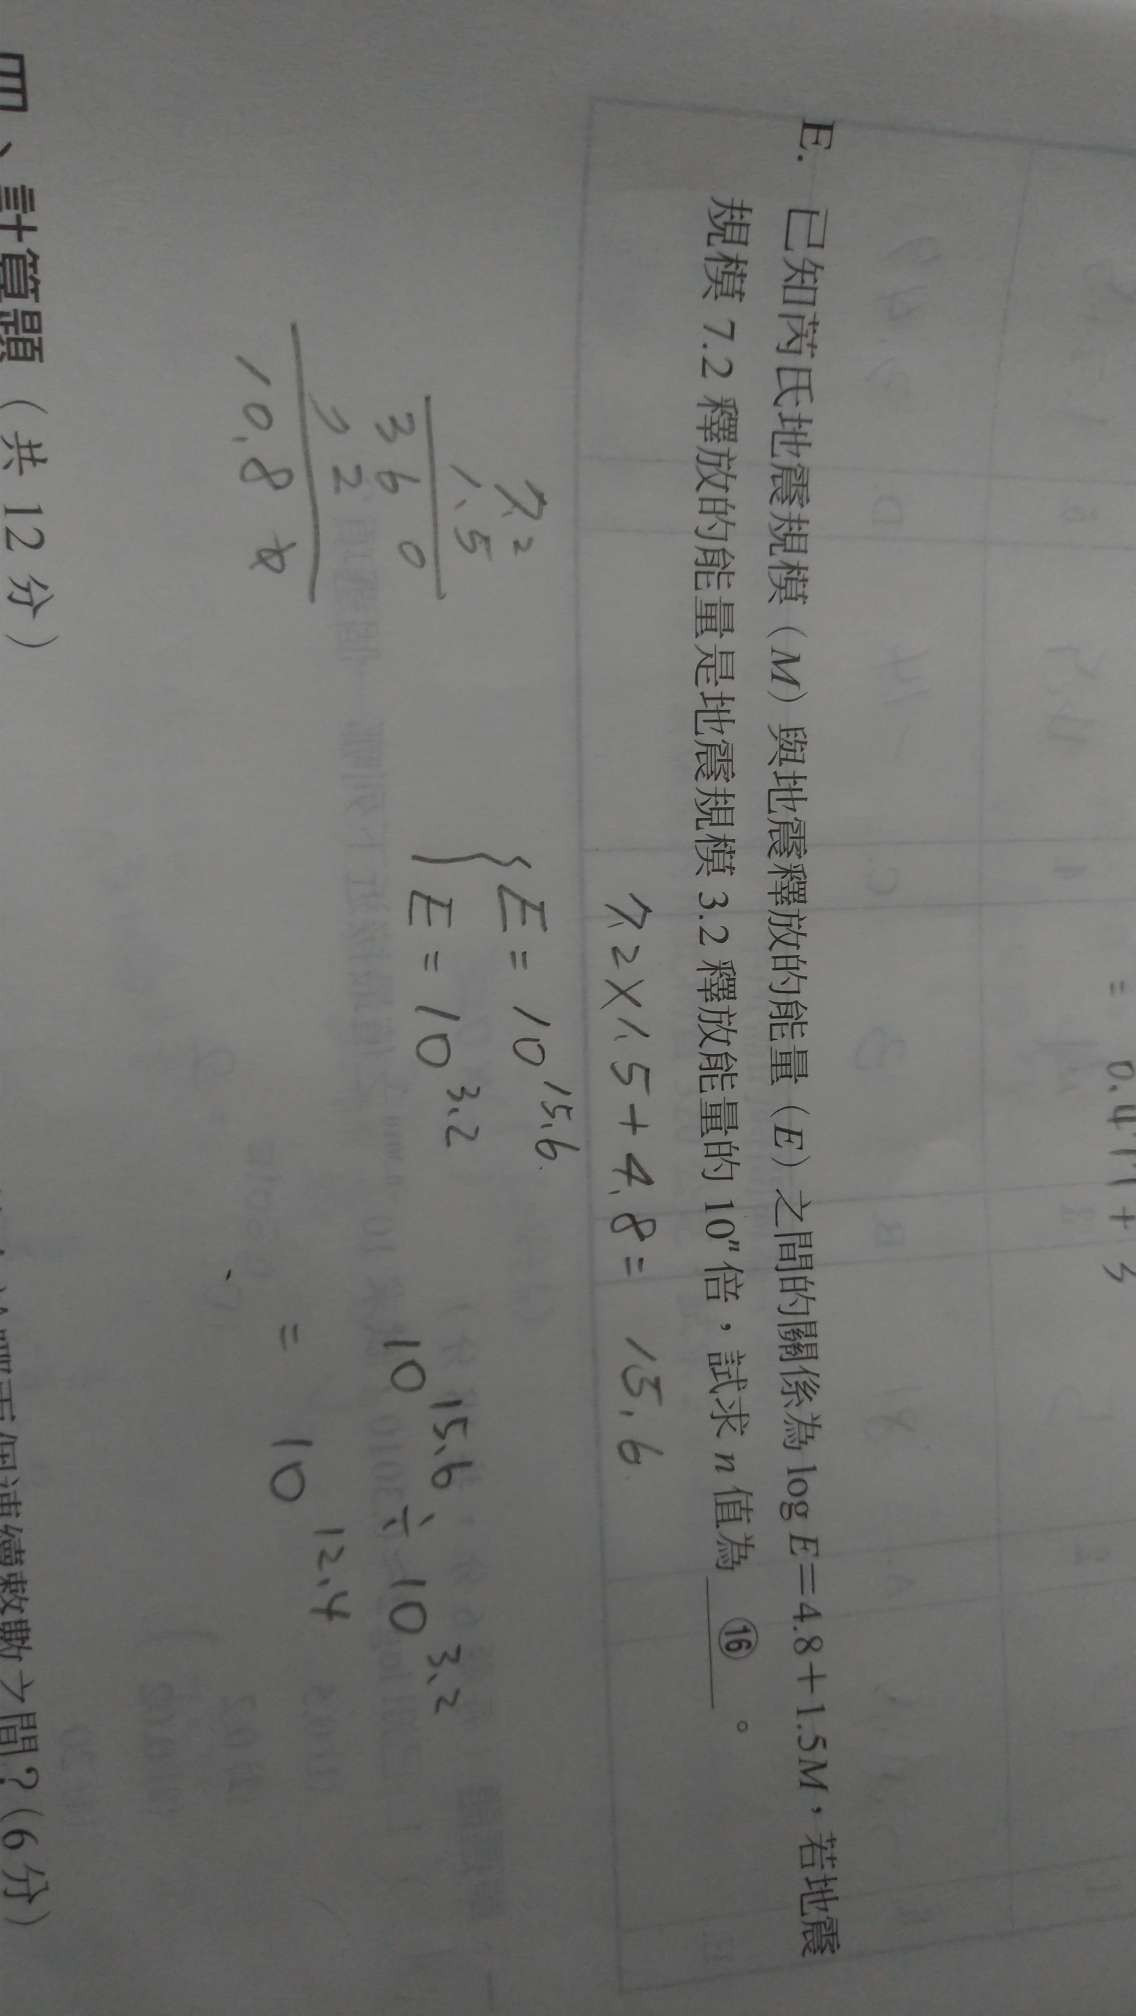 = 0.4771+3
E. 已知芮氏地震規模（M）與地震釋放的能量（E）之間的關係為 log E=4.8+1.5M，若地震
規模 7.2 釋放的能量是地震規模 3.2 釋放能量的 10ⁿ倍，試求 n 值為 ⑯ 。
7.2×1.5+4.8= 15.6
7.2
1.5
360
72
10.8
E=10^15.6
E=10^3.2
10^15.6 ÷ 10^3.2
= 10^12.4
四、計算題（共 12 分）
個連續整數之間？(6 分)